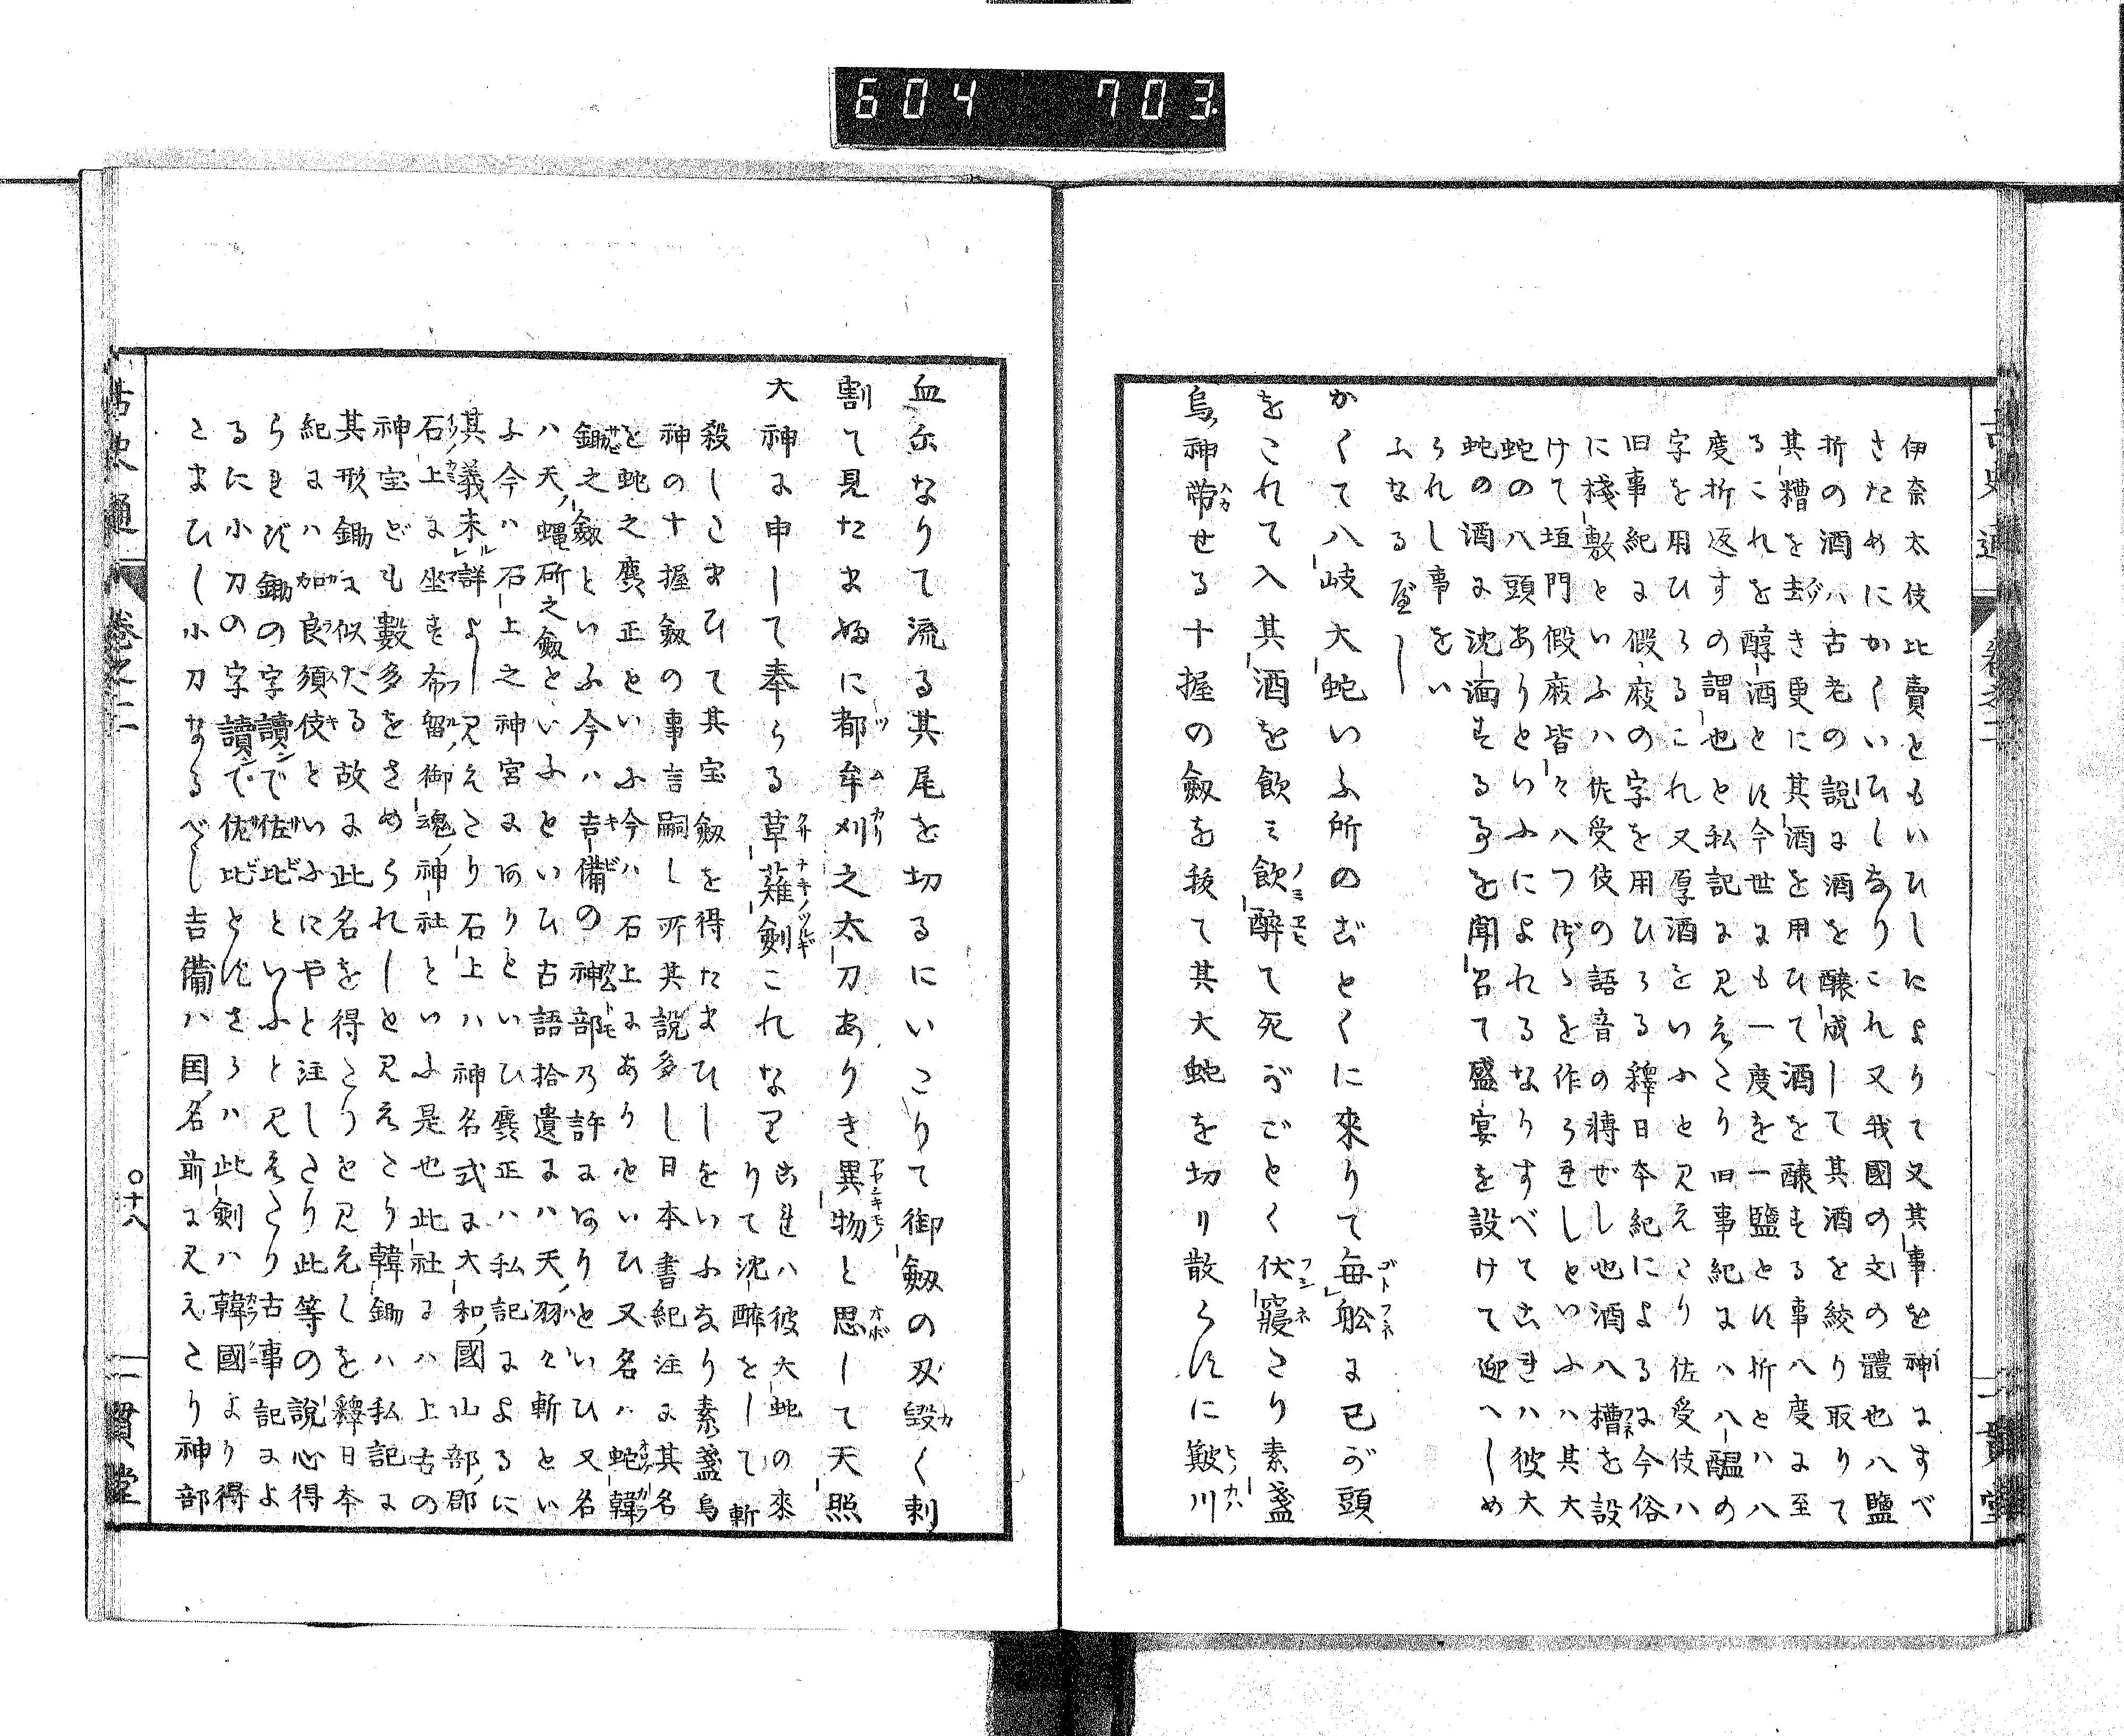 604 703
古史通 卷之二 一貫堂
伊奈太伎比賣ともいひしによりて又其事を神にすべ
さためにかくいひしなりこれ又我國の文の體也八鹽
折の酒ハ古老の説に酒を醸成して其酒を絞り取りて
其糟を去き更に其酒を用ひて酒を醸する事八度に至
るこれを醇酒とす今世にも一度を一鹽とす折とハ八
度折返すの謂也と私記に見えたり旧事紀にハ八醞の
字を用ひらるこれ又厚酒をいふと見えたり佐受伎ハ
旧事紀に假庪の字を用ひらる釋日本紀によるに今俗
に棧敷といふハ佐受伎の語音の轉ぜし也酒八槽を設
けて垣門假庪皆々八つづゝを作られしといふハ其大
蛇の八頭ありといふによれるなりすべてこれハ彼大
蛇の酒に沈湎する事を聞召て盛宴を設けて迎へしめ
られし事をい
ふなるべし
かくて八岐大蛇いふ所のごとくに來りて毎舩に已が頭
をこれて入其酒を飲ミ飲醉て死がごとく伏寢たり素盞
烏神帶せる十握の劔を拔て其大蛇を切り散らすに簸川
血尓なりて流る其尾を切るにいたりて御劔の刄毀く剌
割て見たまぬに都牟刈之太刀ありき異物と思して天照
大神に申して奉らる草薙劍これなり
これハ彼大蛇の來
りて沈醉をして斬
殺したまひて其宝劔を得たまひしをいふなり素盞烏
神の十握劔の事言嗣し所其説多し日本書紀注に其名
を蛇之麁正といふ今ハ石上にありといひ又名ハ蛇韓
鋤之劔といふ今ハ吉備の神部乃許にありといひ又名
ハ天蠅斫之劔といふといひ古語拾遺にハ天羽々斬とい
ふ今ハ石上之神宮にありといひ麁正ハ私記によるに
其義未詳よし見えたり石上ハ神名式に大和國山部郡
石上に坐す布留御魂神社といふ是也此社にハ上古の
神宝ども數多をさめられしと見えたり韓鋤ハ私記に
其形鋤に似たる故に此名を得たりと見えしを釋日本
紀にハ加良須伎といふにやと注したり此等の説心得
られず鋤の字讀で佐比といふと見えたり古事記によ
るに小刀の字讀で佐比とすさらハ此劍ハ韓國より得
たまひし小刀なるべし吉備ハ国名前に見えたり神部
古史通 卷之二 〇十八 一貫堂